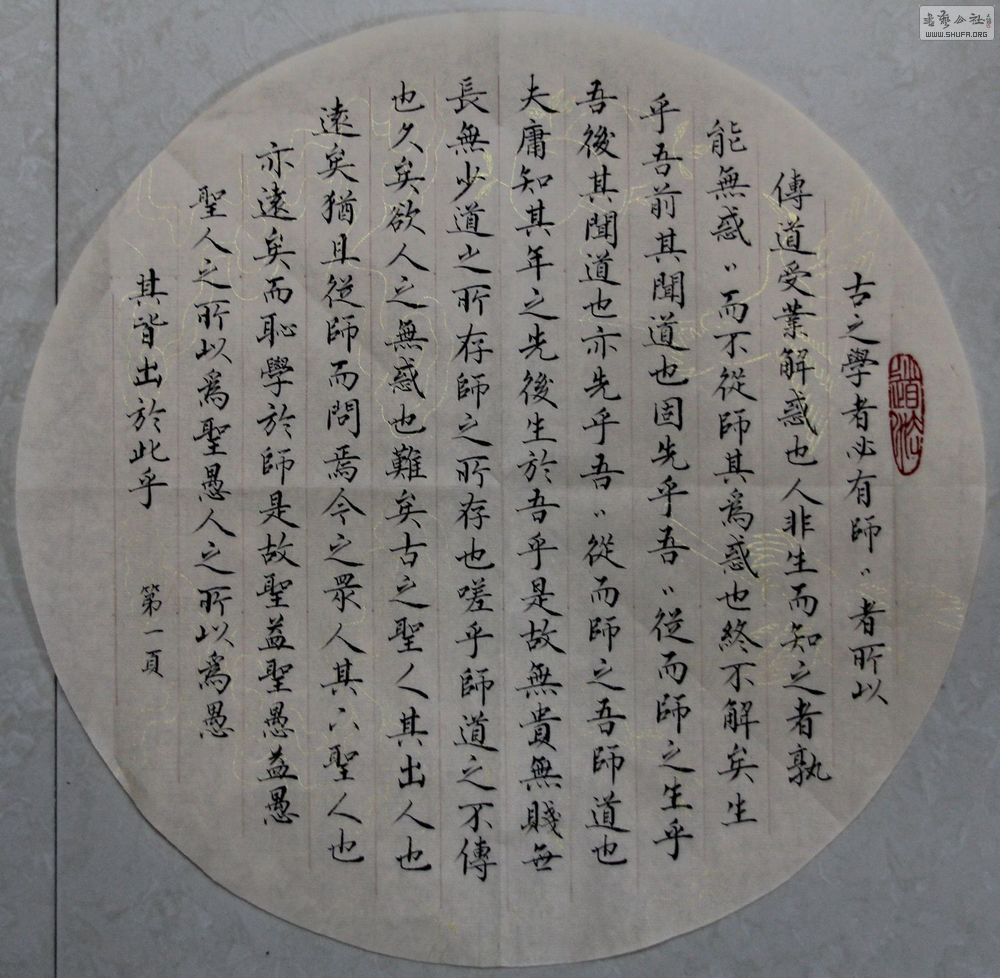 古之學者必有師〻者所以
傳道受業解惑也人非生而知之者孰
能無惑〻而不從師其為惑也終不解矣生
乎吾前其聞道也固先乎吾〻從而師之生乎
吾後其聞道也亦先乎吾〻從而師之吾師道也
夫庸知其年之先後生於吾乎是故無貴無賤無
長無少道之所存師之所存也嗟乎師道之不傳
也久矣欲人之無惑也難矣古之聖人其出人也
遠矣猶且從師而問焉今之眾人其下聖人也
亦遠矣而恥學於師是故聖益聖愚益愚
聖人之所以為聖愚人之所以為愚
其皆出於此乎
第一頁
書藝公社
WWW.SHUFA.ORG